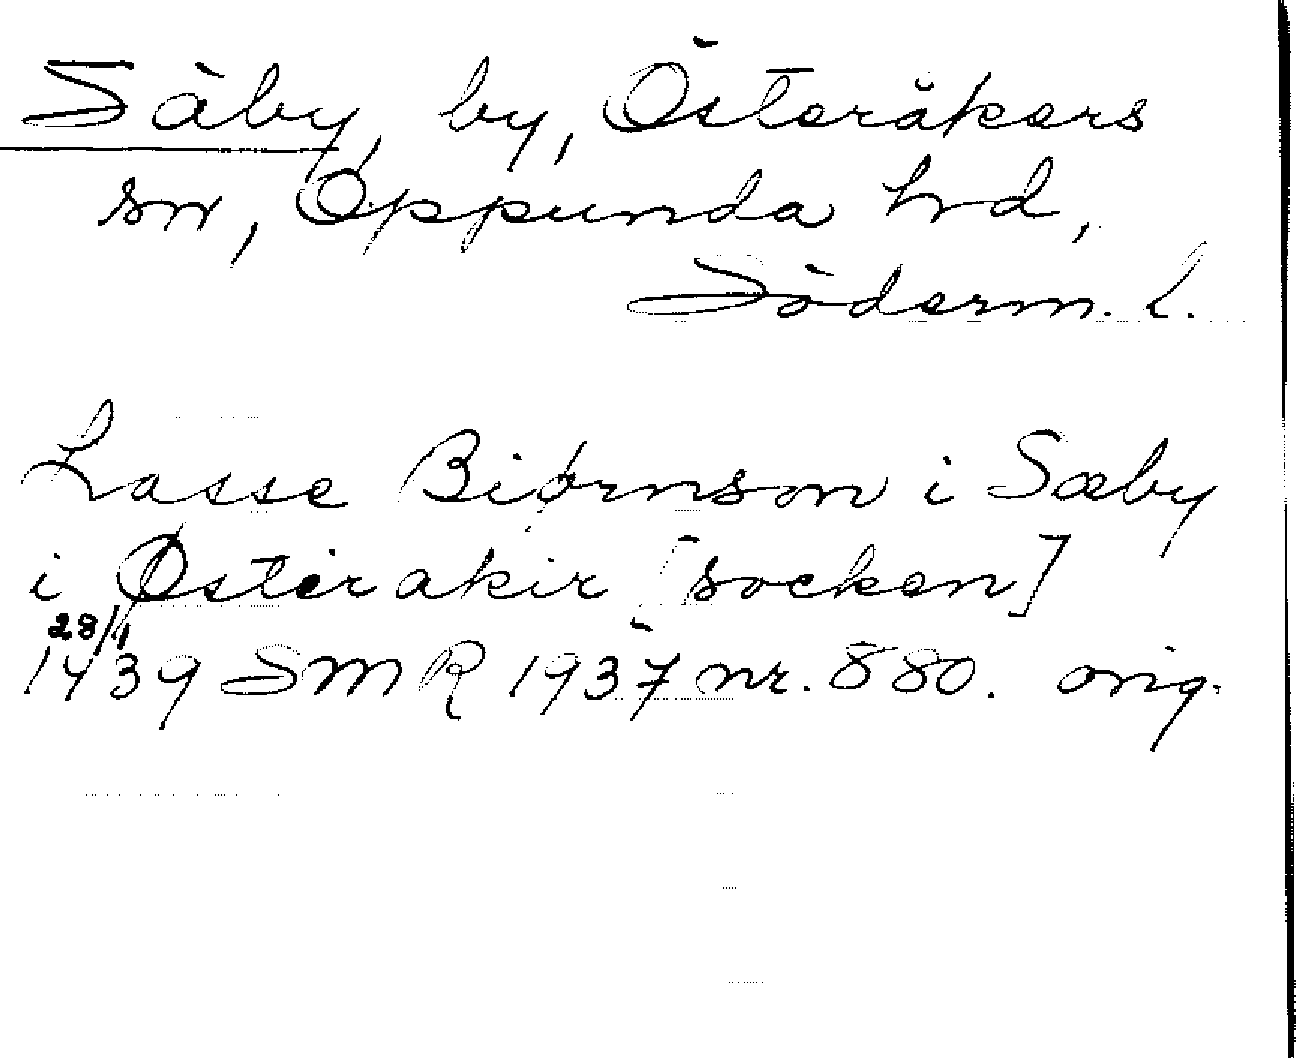 Säby, by, Österåkers
sn, Oppunda hrd,
Söderm. l.
Lasse Biørnson i Sæby
i Østirakir [socken]
28/1
1439 SMR 1937 nr. 880. orig.